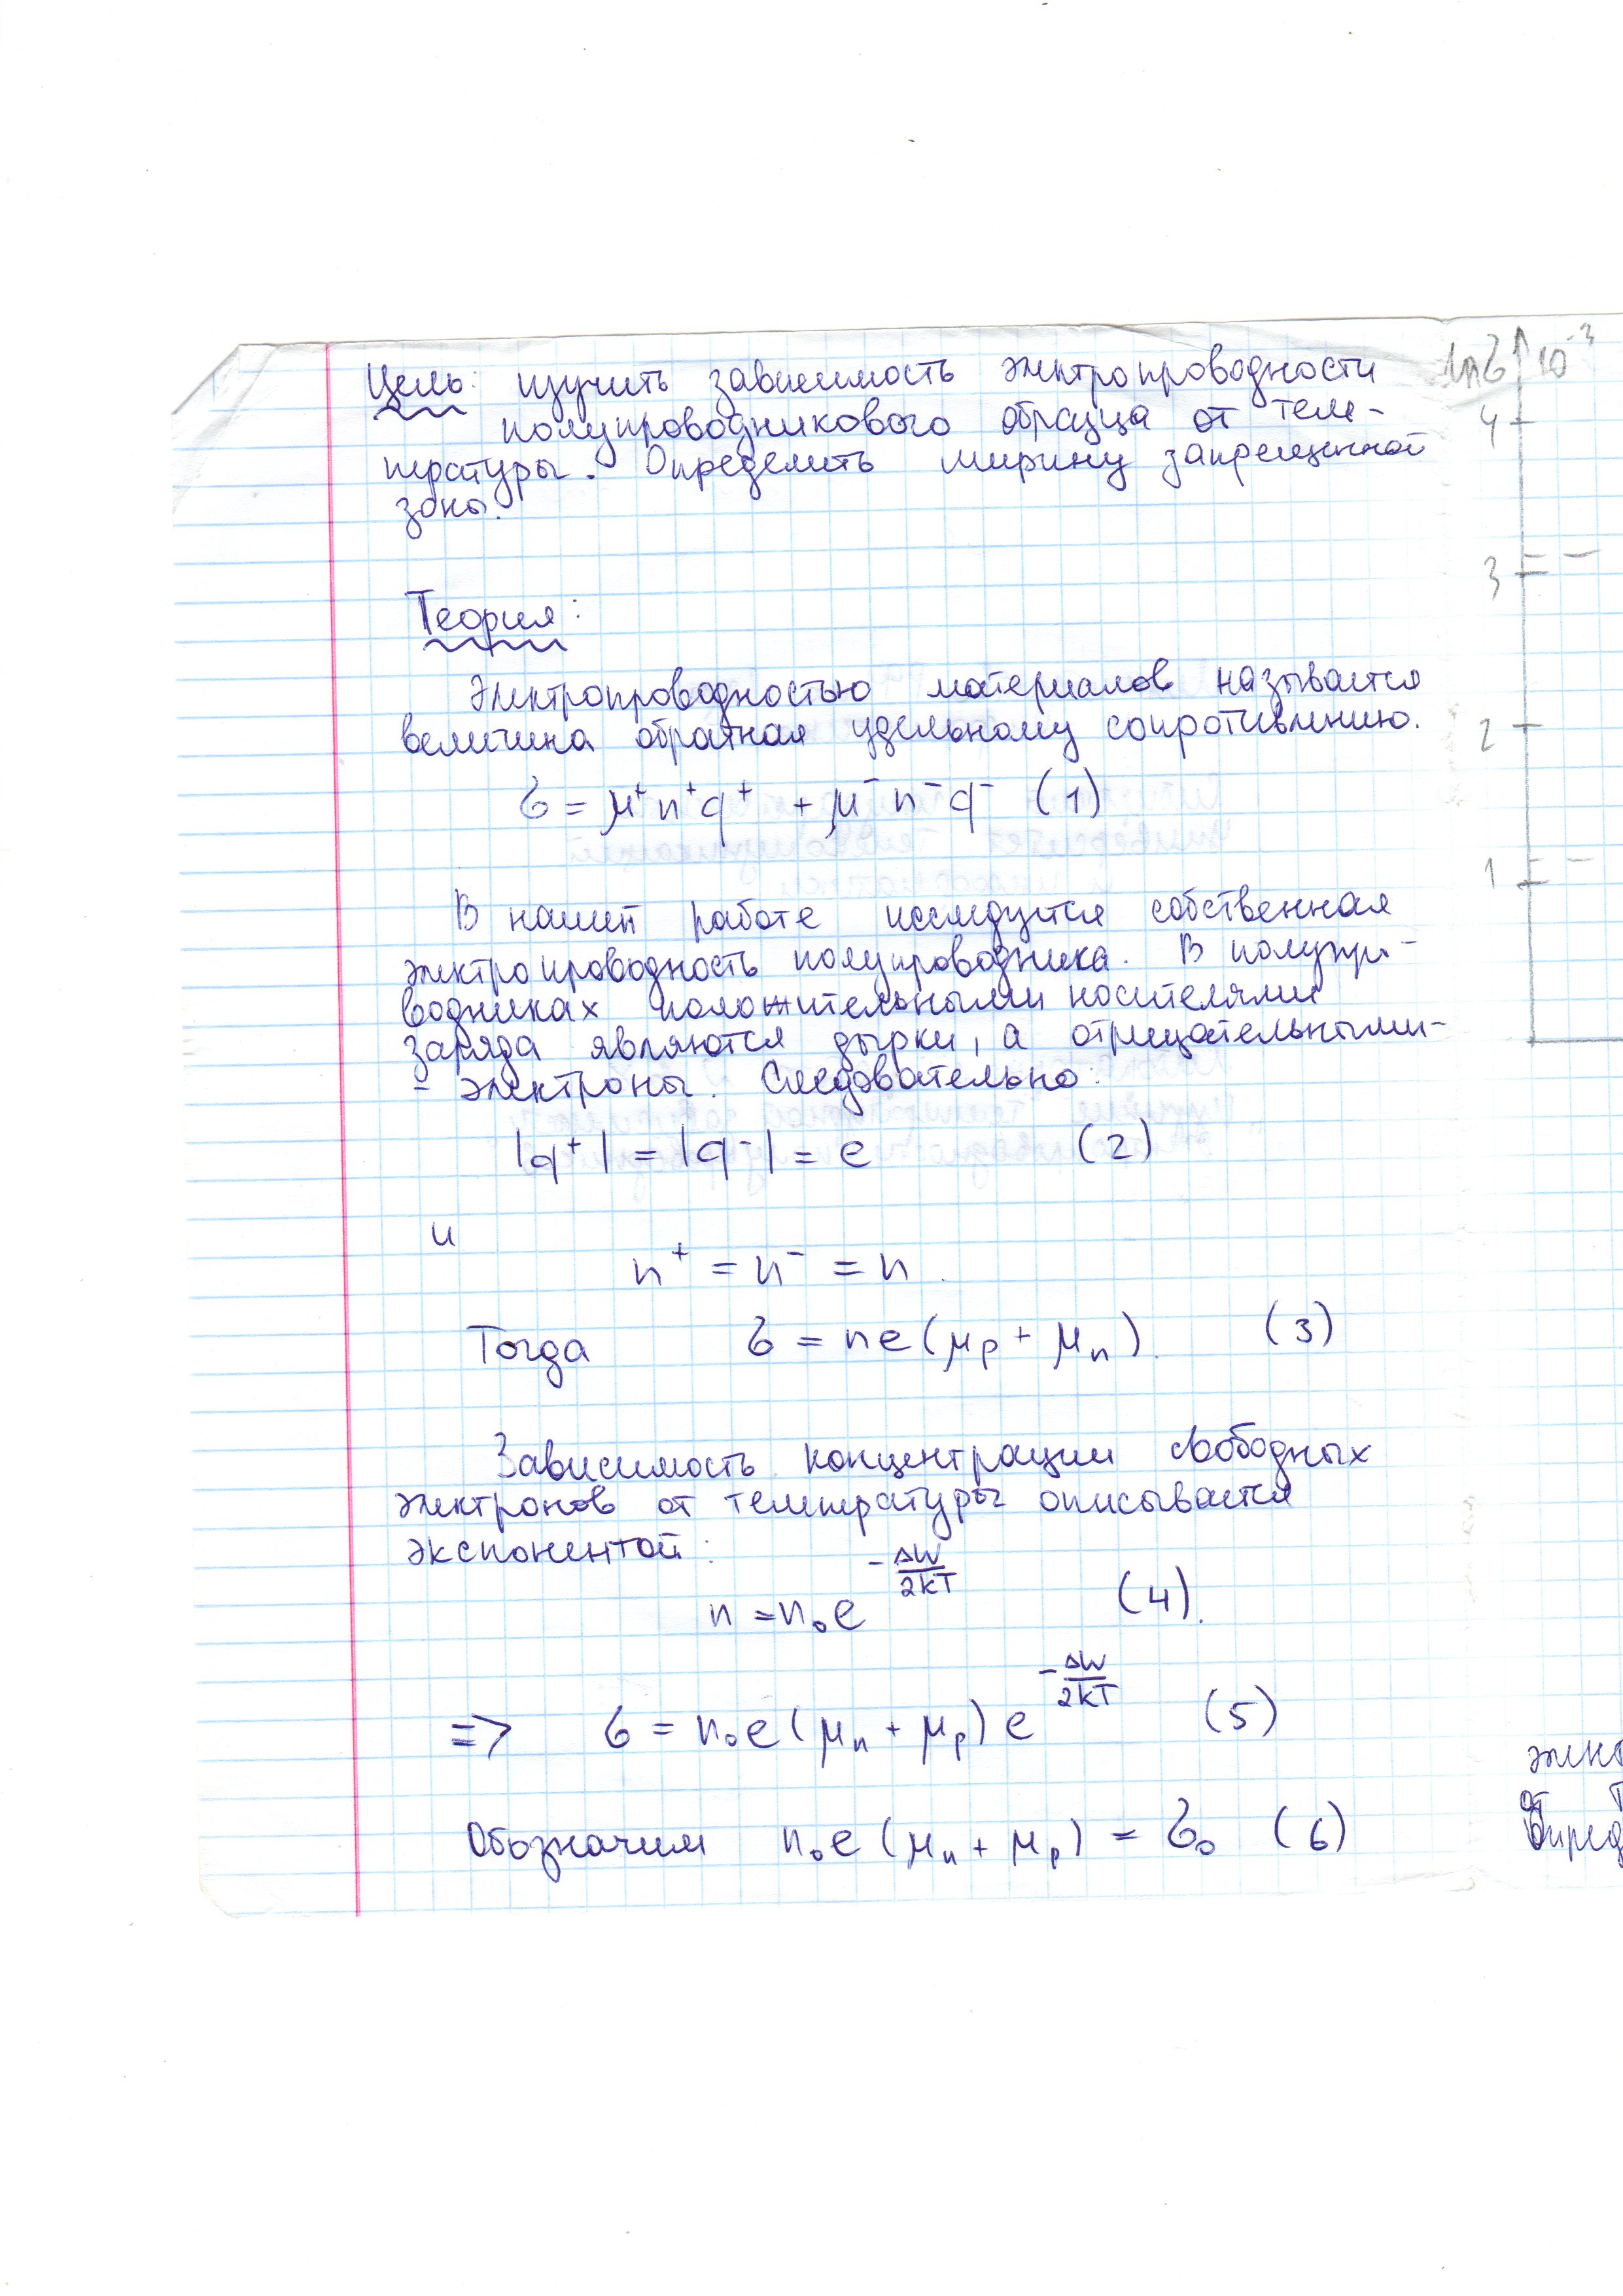 Цель: изучить зависимость электропроводности
полупроводникового образца от тем-
пературы. Определить ширину запрещенной
зоны.
Теория:
Электропроводностью материалов называется
величина обратная удельному сопротивлению.
σ = μ⁺n⁺q⁺ + μ⁻n⁻q⁻ (1)
В нашей работе исследуется собственная
электропроводность полупроводника. В полупро-
водниках положительными носителями
заряда являются дырки, а отрицательными-
- электроны. Следовательно:
|q⁺| = |q⁻| = e (2)
и
n⁺ = n⁻ = n.
Тогда σ = ne(μp + μn). (3)
Зависимость концентрации свободных
электронов от температуры описывается
экспонентой:
n = n₀e^(-ΔW/2kT) (4).
=> σ = n₀e(μn + μp)e^(-ΔW/2kT) (5)
Обозначим n₀e(μn + μp) = σ₀ (6)
lnσ 10⁻³
4
3
2
1